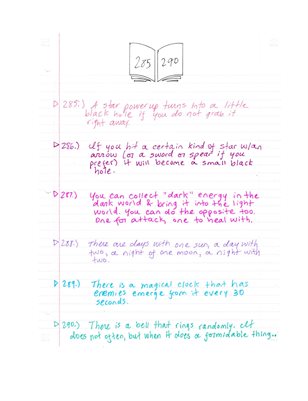 285 290
285.) A star powerup turns into a little
black hole if you do not grab it
right away.
286.) If you hit a certain kind of star w/an
arrow (or a sword or spear if you
prefer) it will become a small black
hole.
287.) You can collect "dark" energy in the
dark world & bring it into the light
world. You can do the opposite too.
One for attack, one to heal with.
288.) There are days with one sun, a day with
two, a night of one moon, a night with
two.
289.) There is a magical clock that has
enemies emerge from it every 30
seconds.
290.) There is a bell that rings randomly. It
does not often, but when it does a formidable thing...